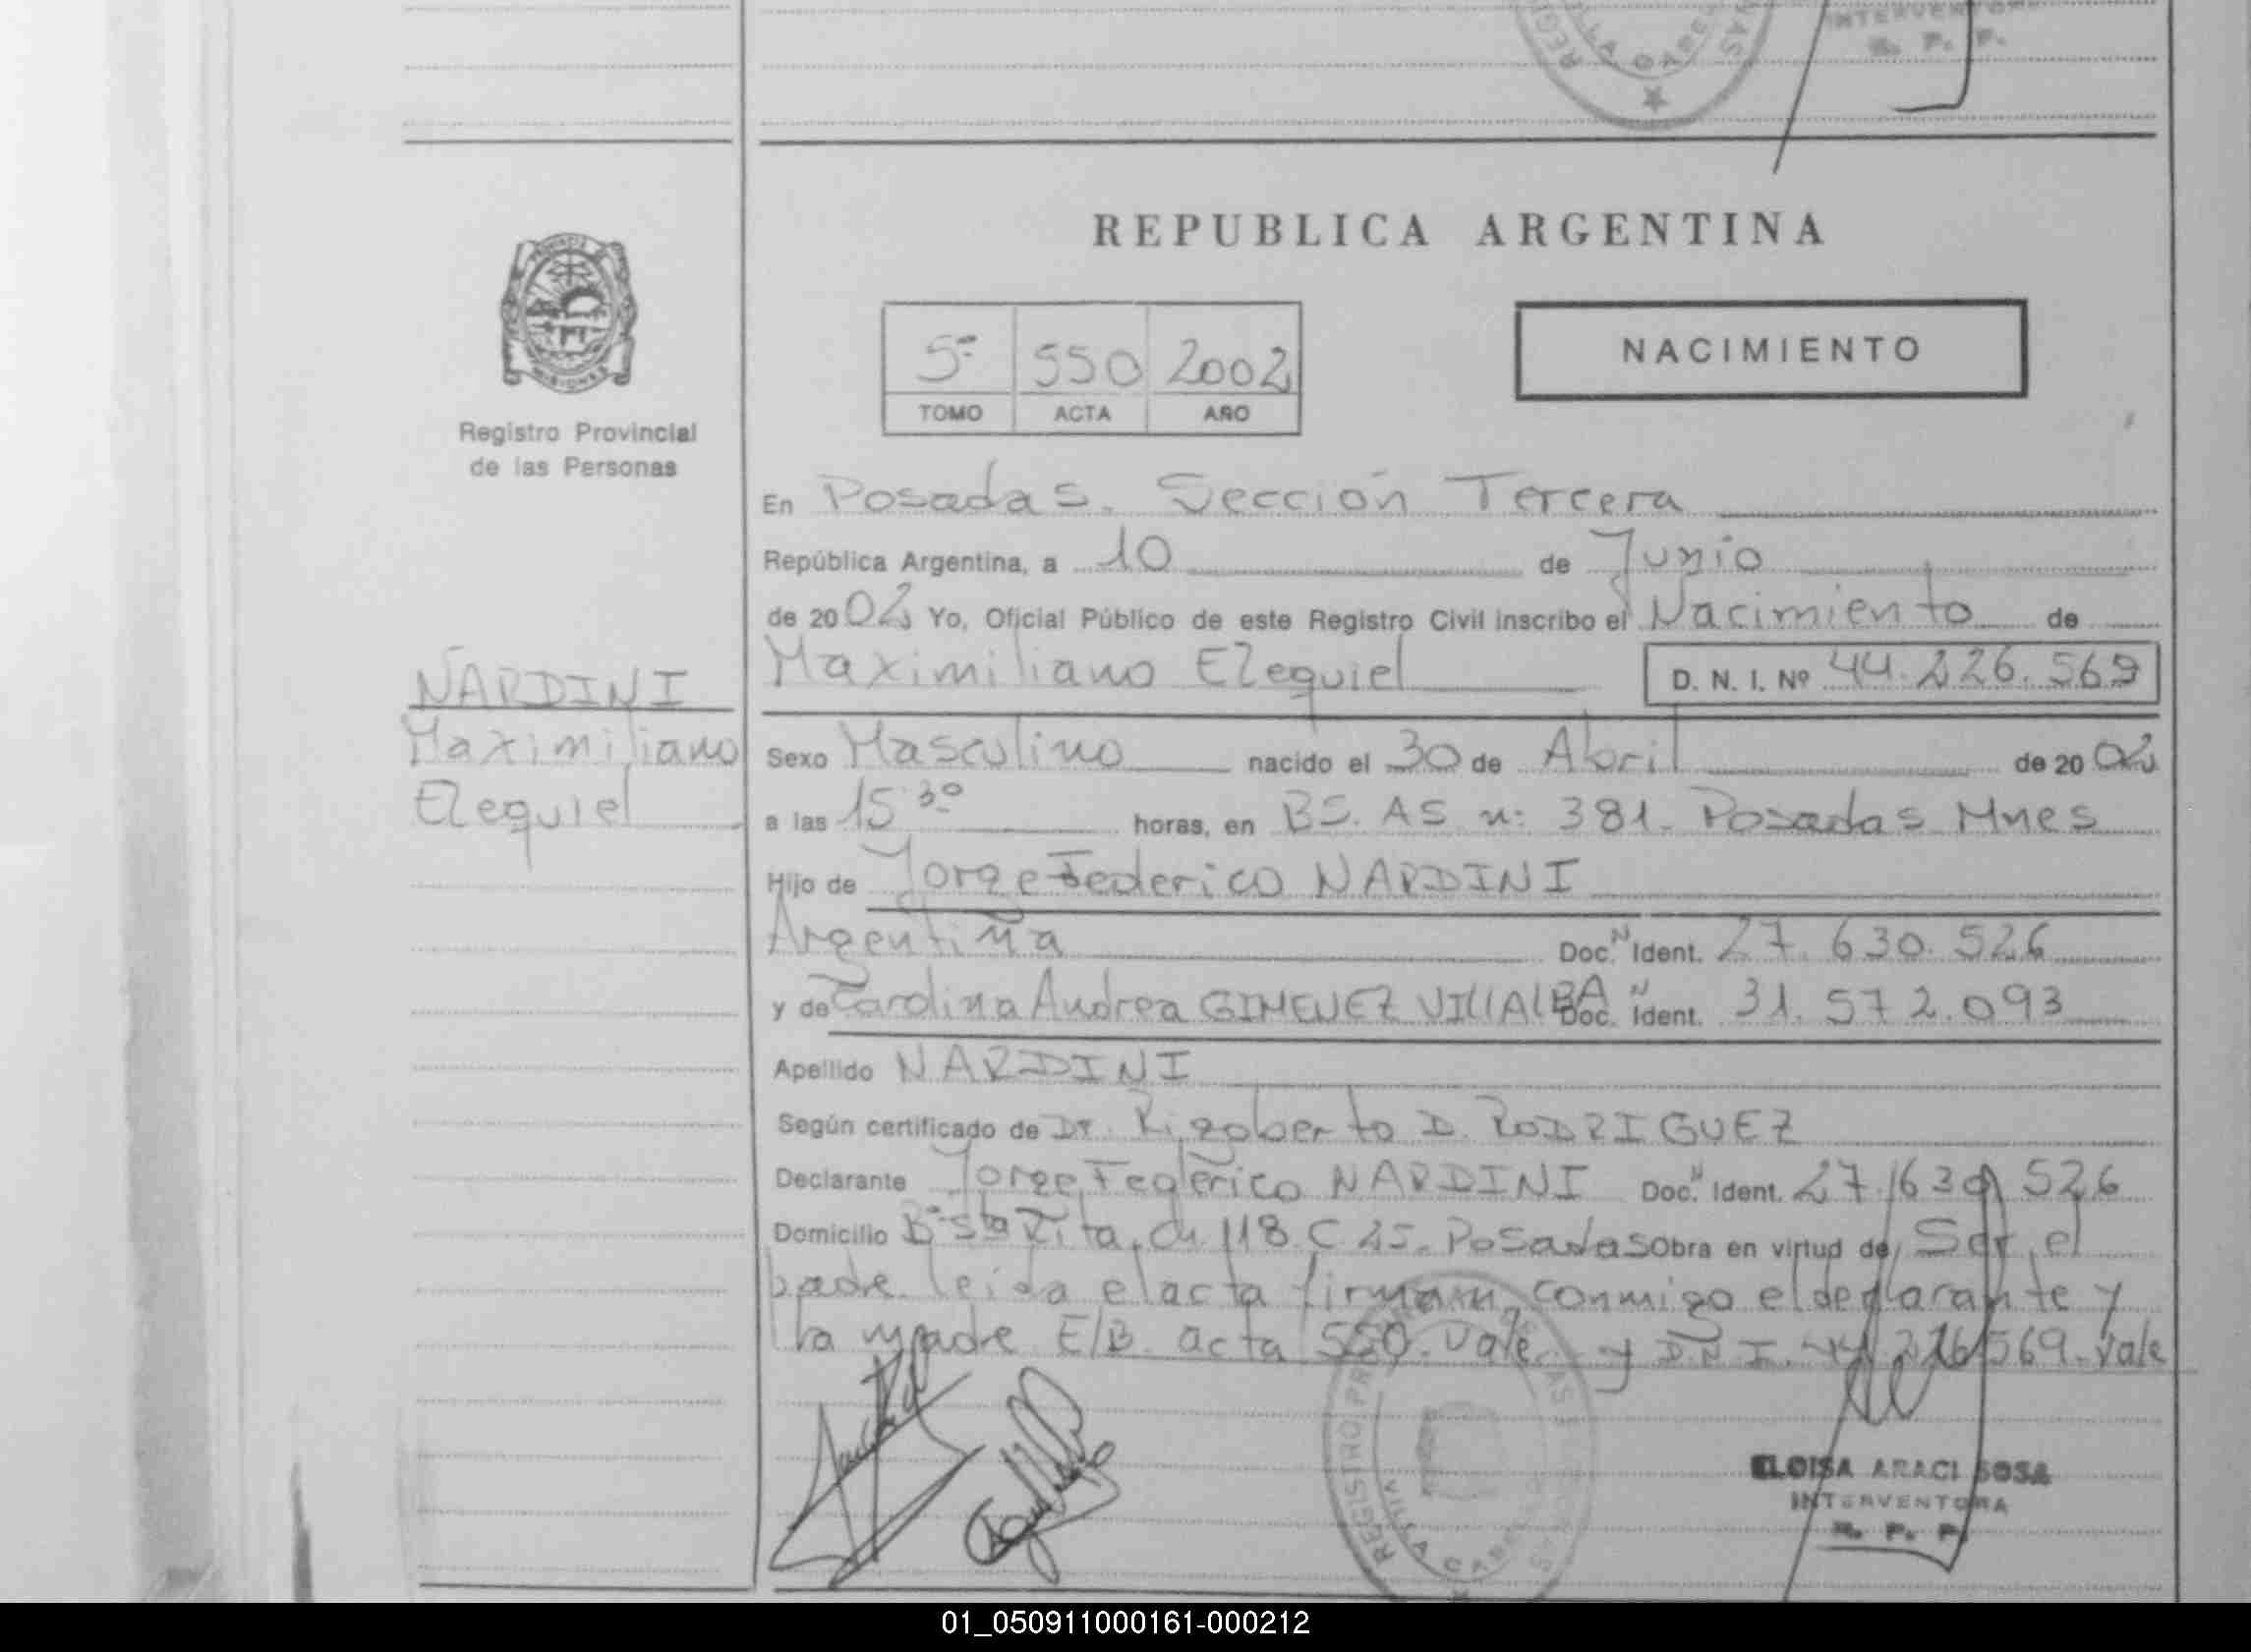 INTERVENTORA
R. P. P.
REPUBLICA ARGENTINA
5º 550 2002
TOMO ACTA AÑO
NACIMIENTO
Registro Provincial
de las Personas
En Posadas. Sección Tercera
República Argentina, a 10 de Junio
de 2002 Yo, Oficial Público de este Registro Civil inscribo el Nacimiento de
Maximiliano Ezequiel D. N. I. Nº 44.226.569
NARDINI
Maximiliano
Ezequiel
Sexo Masculino nacido el 30 de Abril de 2002
a las 15 30 horas, en BS. AS n: 381. Posadas Mnes
Hijo de Jorge Federico NARDINI
Argentina Doc. N Ident. 27.630.526
y de Carolina Andrea GIMENEZ VIllAlBA Doc. N Ident. 31.572.093
Apellido NARDINI
Según certificado de Dr. Rigoberto D. RODRIGUEZ
Declarante Jorge Federico NARDINI Doc. N Ident. 27.630.526
Domicilio Bº Sta Rita. Ch. 118 C 25. Posadas obra en virtud de Ser el
padre leida el acta firman conmigo el declarante y
la madre E/B. acta 550. vale y D.N.I. 44.226.569. vale
REGISTRO
VILLA CABELLO
ELOISA ARACI SOSA
INTERVENTORA
R. P. P.
01_050911000161-000212